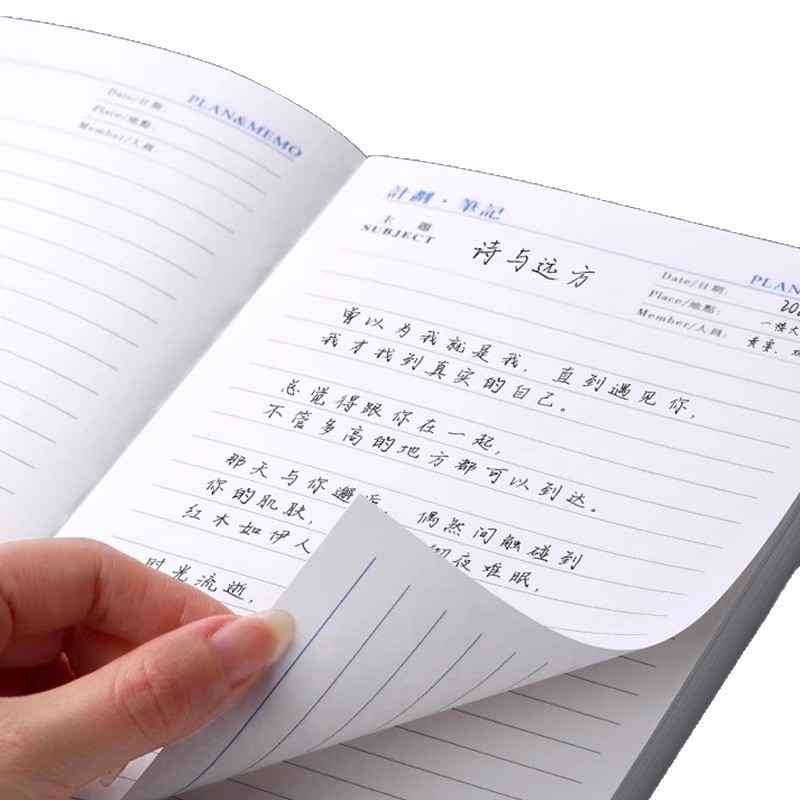 PLAN&MEMO
Date/日期:
Place/地點:
Member/人員:
計劃·筆記
主題
SUBJECT
诗与远方
PLAN
Date/日期: 202
Place/地點: 一楼大
Member/人員:
曾以为我就是我,直到遇见你,
我才找到真实的自己。
总觉得跟你在一起,
不管多高的地方都可以到达。
那天与你邂逅,偶然间触碰到
你的肌肤,
红木如伊人 彻夜难眠,
时光流逝,